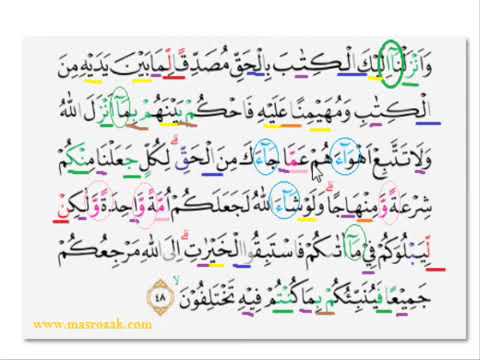 وَاَنْزَلْنَآ اِلَيْكَ الْكِتٰبَ بِالْحَقِّ مُصَدِّقًا لِّمَا بَيْنَ يَدَيْهِ مِنَ
الْكِتٰبِ وَمُهَيْمِنًا عَلَيْهِ فَاحْكُمْ بَيْنَهُمْ بِمَآ اَنْزَلَ اللّٰهُ
وَلَا تَتَّبِعْ اَهْوَاۤءَهُمْ عَمَّا جَاۤءَكَ مِنَ الْحَقِّ ۗ لِكُلٍّ جَعَلْنَا مِنْكُمْ
شِرْعَةً وَّمِنْهَاجًا ۗ وَلَوْ شَاۤءَ اللّٰهُ لَجَعَلَكُمْ اُمَّةً وَّاحِدَةً وَّلٰكِنْ
لِّيَبْلُوَكُمْ فِيْ مَآ اٰتٰىكُمْ فَاسْتَبِقُوا الْخَيْرٰتِ ۗ اِلَى اللّٰهِ مَرْجِعُكُمْ
جَمِيْعًا فَيُنَبِّئُكُمْ بِمَا كُنْتُمْ فِيْهِ تَخْتَلِفُوْنَ ۙ ٤٨
www.masrozak.com